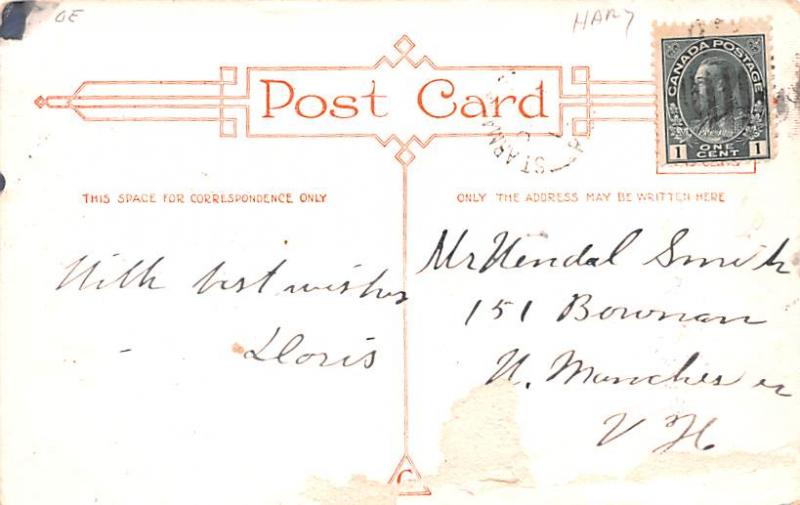 OE
HARY
CANADA POSTAGE
1 ONE CENT 1
Post Card
STARM
THIS SPACE FOR CORRESPONDENCE ONLY
ONLY THE ADDRESS MAY BE WRITTEN HERE
With best wishes
Doris
Mr Kendal Smith
151 Bowman
N. Manchester
N H
G